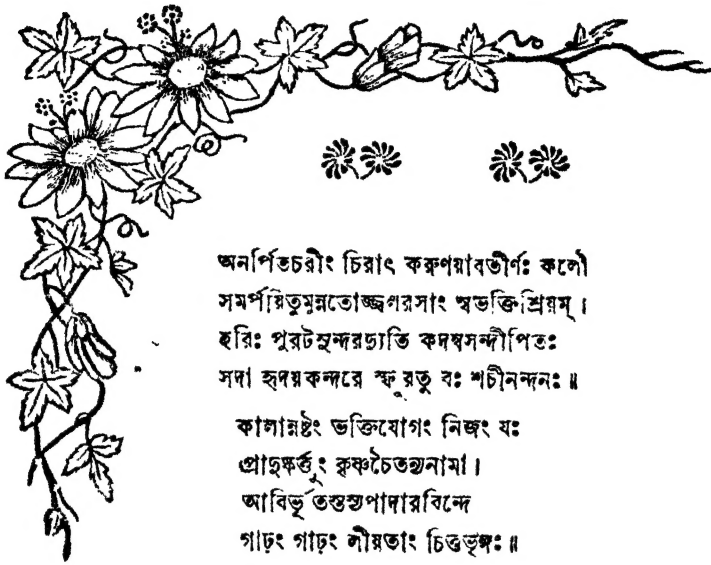 অনর্পিতচরীং চিরাৎ করুণয়াবতীর্ণঃ কলৌ
সমর্পয়িতুমুন্নতোজ্জ্বলরসাং স্বভক্তিশ্রিয়ম্ ।
হরিঃ পুরটসুন্দরদ্যুতি কদম্বসন্দীপিতঃ
সদা হৃদয়কন্দরে স্ফুরতু বঃ শচীনন্দনঃ ॥
কালান্নষ্টং ভক্তিযোগং নিজং যঃ
প্রাদুষ্কর্ত্তুং কৃষ্ণচৈতন্যনামা ।
আবির্ভূতস্তস্যপাদারবিন্দে
গাঢ়ং গাঢ়ং লীয়তাং চিত্তভৃঙ্গঃ ॥